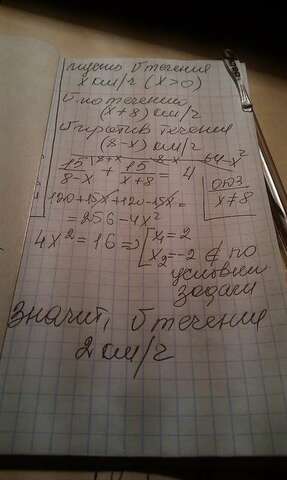 пусть v течения
x км/ч (x>0)
v по течению
(x+8) км/ч
v против течения
(8-x) км/ч
15/8-x + 15/x+8 = 4
ОЮЗ
x≠8
120+15x+120-15x=
=256-4x²
4x²=16=>[x₁=2
x₂=-2 ∉ по
условию
задачи
Значит, v течения
2 км/ч